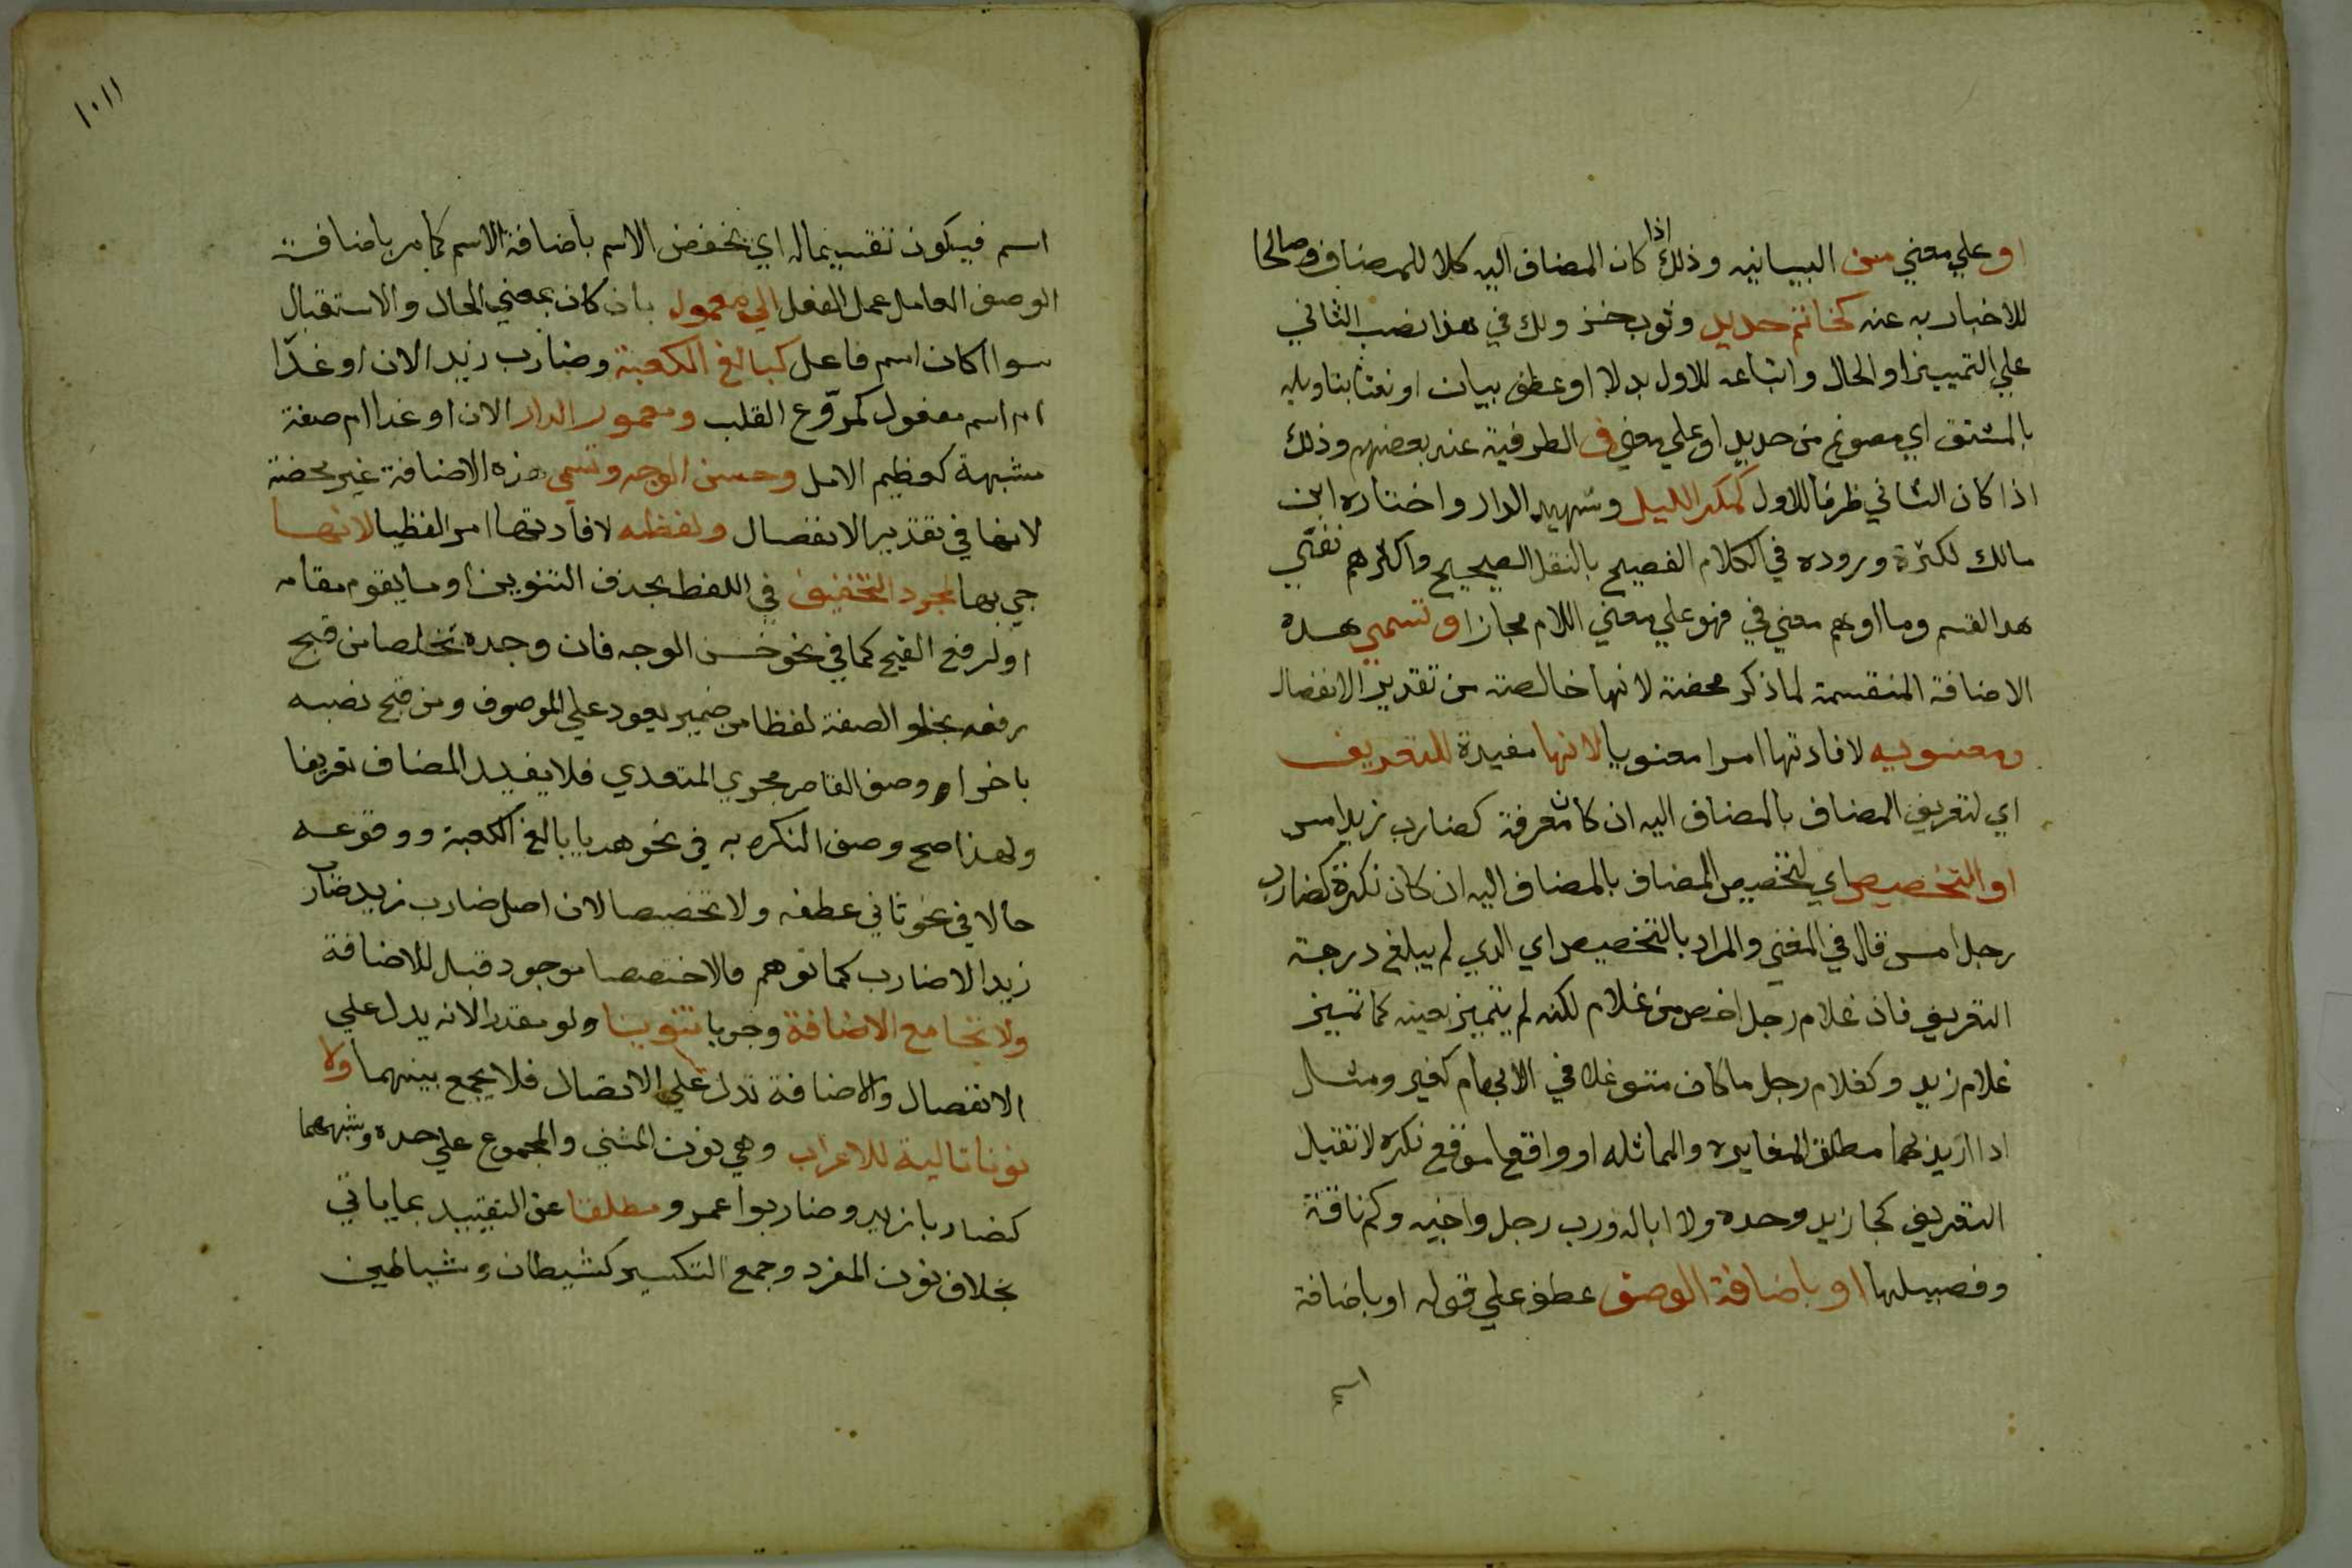 او علي معني من البيانيه وذلك اذا كان المضاف اليه كلا للمضاف وصالحا
للاخبار به عنه كخاتم حديد وثوب خز ولك في هذا نصب الثاني
علي التمييز او الحال واتباعه للاول بدلا او عطف بيان او نعتا بتاويله
بالمشتق اي مصوغ من حديد او علي معني في الظرفية عند بعضهم وذلك
اذا كان الثاني ظرفا للاول كمكر الليل وشهيد الدار واختاره ابن
مالك لكثرة وروده في الكلام الفصيح بالنقل الصحيح واكثرهم نفي
هدا القسم وما اوهم معني في فهو علي معني اللام مجازا وتسمي هده
الاضافة المنقسمة لما ذكر محضة لانها خالصة من تقدير الانفصال
ومعنويه لافادتها امرا معنويا لانها مفيدة للتعريف
اي لتعريف المضاف بالمضاف اليه ان كان معرفة كضارب زيد امس
او التخصيص اي لتخصيص المضاف بالمضاف اليه ان كان نكرة كضارب
رجل امس قال في المغني والمراد بالتخصيص اي الدي لم يبلغ درجة
التعريف فان غلام رجل اخص من غلام لكنه لم يتميز بعينه كما تميز
غلام زيد وكغلام رجل ما كان متوغلا في الابهام كغير ومثل
ادا اريد بهما مطلق المغايره والمماثله او واقعا موقع نكره لا تقبل
التعريف كجا زيد وحده ولا ابا له ورب رجل واخيه وكم ناقة
وفصيلها او باضافة الوصف عطف علي قوله او باضافة
اسم
١٠١١
اسم فيكون تقسيما له اي يخفض الاسم باضافة الاسم كما مر باضافة
الوصف العامل عمل الفعل الي معمول بان كان بمعني الحال والاستقبال
سوا اكان اسم فاعل كبالغ الكعبة وضارب زيد الان او غدا
ام اسم مفعول كمروّع القلب ومعمور الدار الان او غدا ام صفة
مشبهة كعظيم الامل وحسن الوجه وتسمي هذه الاضافة غير محضة
لانها في تقدير الانفصال ولفظيه لافادتها امرا لفظيا لانها
جي بها لمجرد التخفيف في اللفظ بحذف التنوين او ما يقوم مقامه
او لرفع القبح كما في نحو حسن الوجه فان وجده تخلصا من قبح
رفعه بخلو الصفة لفظا من ضمير يعود علي الموصوف ومن قبح نصبه
باخراء وصف القاصر مجري المتعدي فلا يفيد المضاف تعريفا
ولهذا صح وصف النكره به في نحو هديا بالغ الكعبة ووقوعه
حالا في نحو ثاني عطفه ولا تخصيصا لان اصل ضارب زيد ضارب
زيدا لا ضارب كما توهم فالاختصصا موجود قبل للاضافة
ولا تجامع الاضافة وجوبا تنوينا ولو مقدرا لانه يدل علي
الانفصال والاضافة تدل علي الاتصال فلا يجمع بينهما ولا
نونا تالية للاعراب وهي نون المثني والمجموع علي حده وشبههما
كضاربا زيد وضاربوا عمرو مطلقا عن التقييد بما ياتي
بخلاف نون المفرد وجمع التكسير كشيطان وشياطين